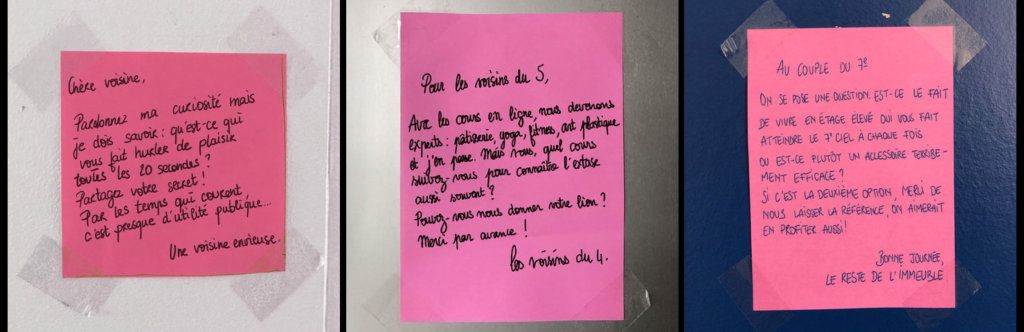 Chère voisine,
Pardonnez ma curiosité mais
je dois savoir : qu'est-ce qui
vous fait hurler de plaisir
toutes les 20 secondes ?
Partagez votre secret !
Par les temps qui courent,
c'est presque d'utilité publique...
Une voisine envieuse.
Pour les voisins du 5,
Avec les cours en ligne, nous devenons
experts : pâtisserie, yoga, fitness, art plastique
et j'en passe. Mais vous, quel cours
suivez-vous pour connaître l'extase
aussi souvent ?
Pouvez-vous nous donner votre lien ?
Merci par avance !
Les voisins du 4.
AU COUPLE DU 7e
ON SE POSE UNE QUESTION. EST-CE LE FAIT
DE VIVRE EN ÉTAGE ELEVÉ QUI VOUS FAIT
ATTEINDRE LE 7e CIEL À CHAQUE FOIS
OU EST-CE PLUTÔT UN ACCESSOIRE TERRIBE-
MENT EFFICACE ?
SI C'EST LA DEUXIÈME OPTION, MERCI DE
NOUS LAISSER LA RÉFÉRENCE, ON AIMERAIT
EN PROFITER AUSSI !
BONNE JOURNÉE,
LE RESTE DE L'IMMEUBLE